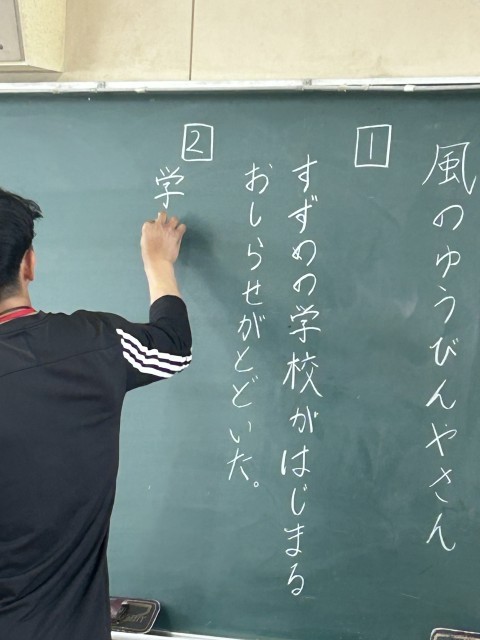 風のゆうびんやさん
1
すずめの学校がはじまる
おしらせがとどいた。
2
学